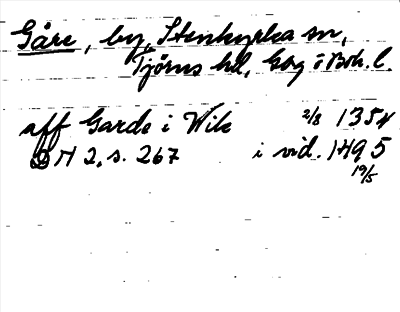 Gåre, by, Stenkyrka sn,
Tjörns hd, Gbg o Boh. l.
aff Garde i Wik 2/8 1354
DN 2, s. 267 i vid. 1495
19/5